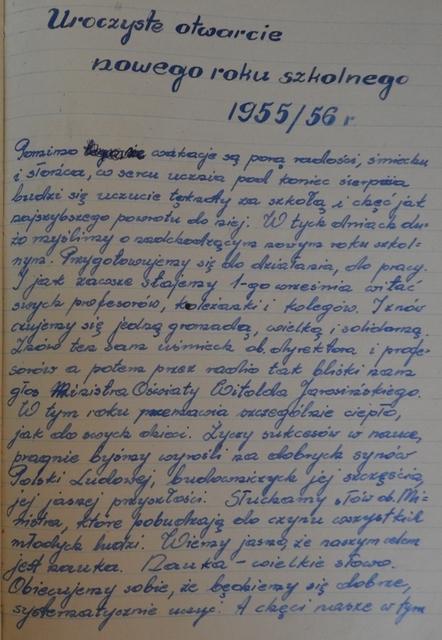 Uroczyste otwarcie
nowego roku szkolnego
1955/56 r
Pomimo wakacje są porą radości, śmiechu
i słońca, w sercu ucznia pod koniec sierpnia
budzi się uczucie tęsknoty za szkołą i chęć jak
najszybszego powrotu do niej. W tych dniach du-
żo myślimy o nadchodzącym nowym roku szkol-
nym. Przygotowujemy się do działania, do pracy.
I jak zawsze stajemy 1-go września witać
swych profesorów, koleżanki i kolegów. I znów
czujemy się jedną gromadą, wielką i solidarną.
Znów ten sam uśmiech ob. dyrektora i profe-
sorów a potem przez radio tak bliski nam
głos Ministra Oświaty Witolda Jarosińskiego.
W tym roku przemawia szczególnie ciepło,
jak do swych dzieci. Życzy sukcesów w nauce,
pragnie byśmy wyrośli na dobrych synów
Polski Ludowej, budowniczych jej szczęścia,
jej jasnej przyszłości. Słuchamy słów ob. Mi-
nistra, które pobudzają do czynu wszystkich
młodych ludzi. Wiemy jasno, że naszym celem
jest nauka. Nauka – wielkie słowo.
Obiecujemy sobie, że będziemy się dobrze,
systematycznie uczyć. A chęci nasze w tym